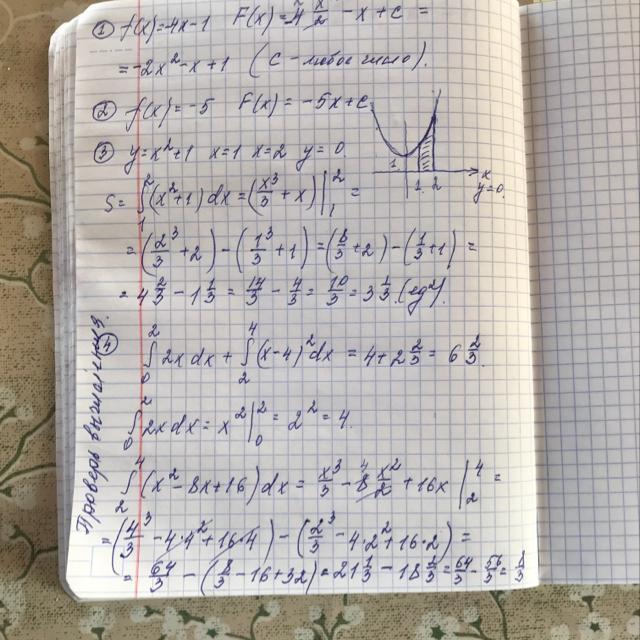 ① f(x)=-4x-1 F(x)=-4 x²/2 - x + c =
= -2x² - x + 1 (С - любое число).
② f(x)=-5 F(x)=-5x+c
③ y=x²+1 x=1 x=2 y=0.
S = ∫₁² (x²+1) dx = (x³/3 + x) |₁² =
= (2³/3 + 2) - (1³/3 + 1) = (8/3 + 2) - (1/3 + 1) =
= 4 2/3 - 1 1/3 = 14/3 - 4/3 = 10/3 = 3 1/3 (ед²).
1 1 2 x
y=0.
Проверь вычисления.
④ ∫₀² 2x dx + ∫₂⁴ (x-4)² dx = 4 + 2 2/3 = 6 2/3.
∫₀² 2x dx = x² |₀² = 2² = 4.
∫₂⁴ (x² - 8x + 16) dx = x³/3 - 8 x²/2 + 16x |₂⁴ =
= (4³/3 - 4·4² + 16·4) - (2³/3 - 4·2² + 16·2) =
= 64/3 - (8/3 - 16 + 32) = 21 1/3 - 18 2/3 = 64/3 - 56/3 = 8/3